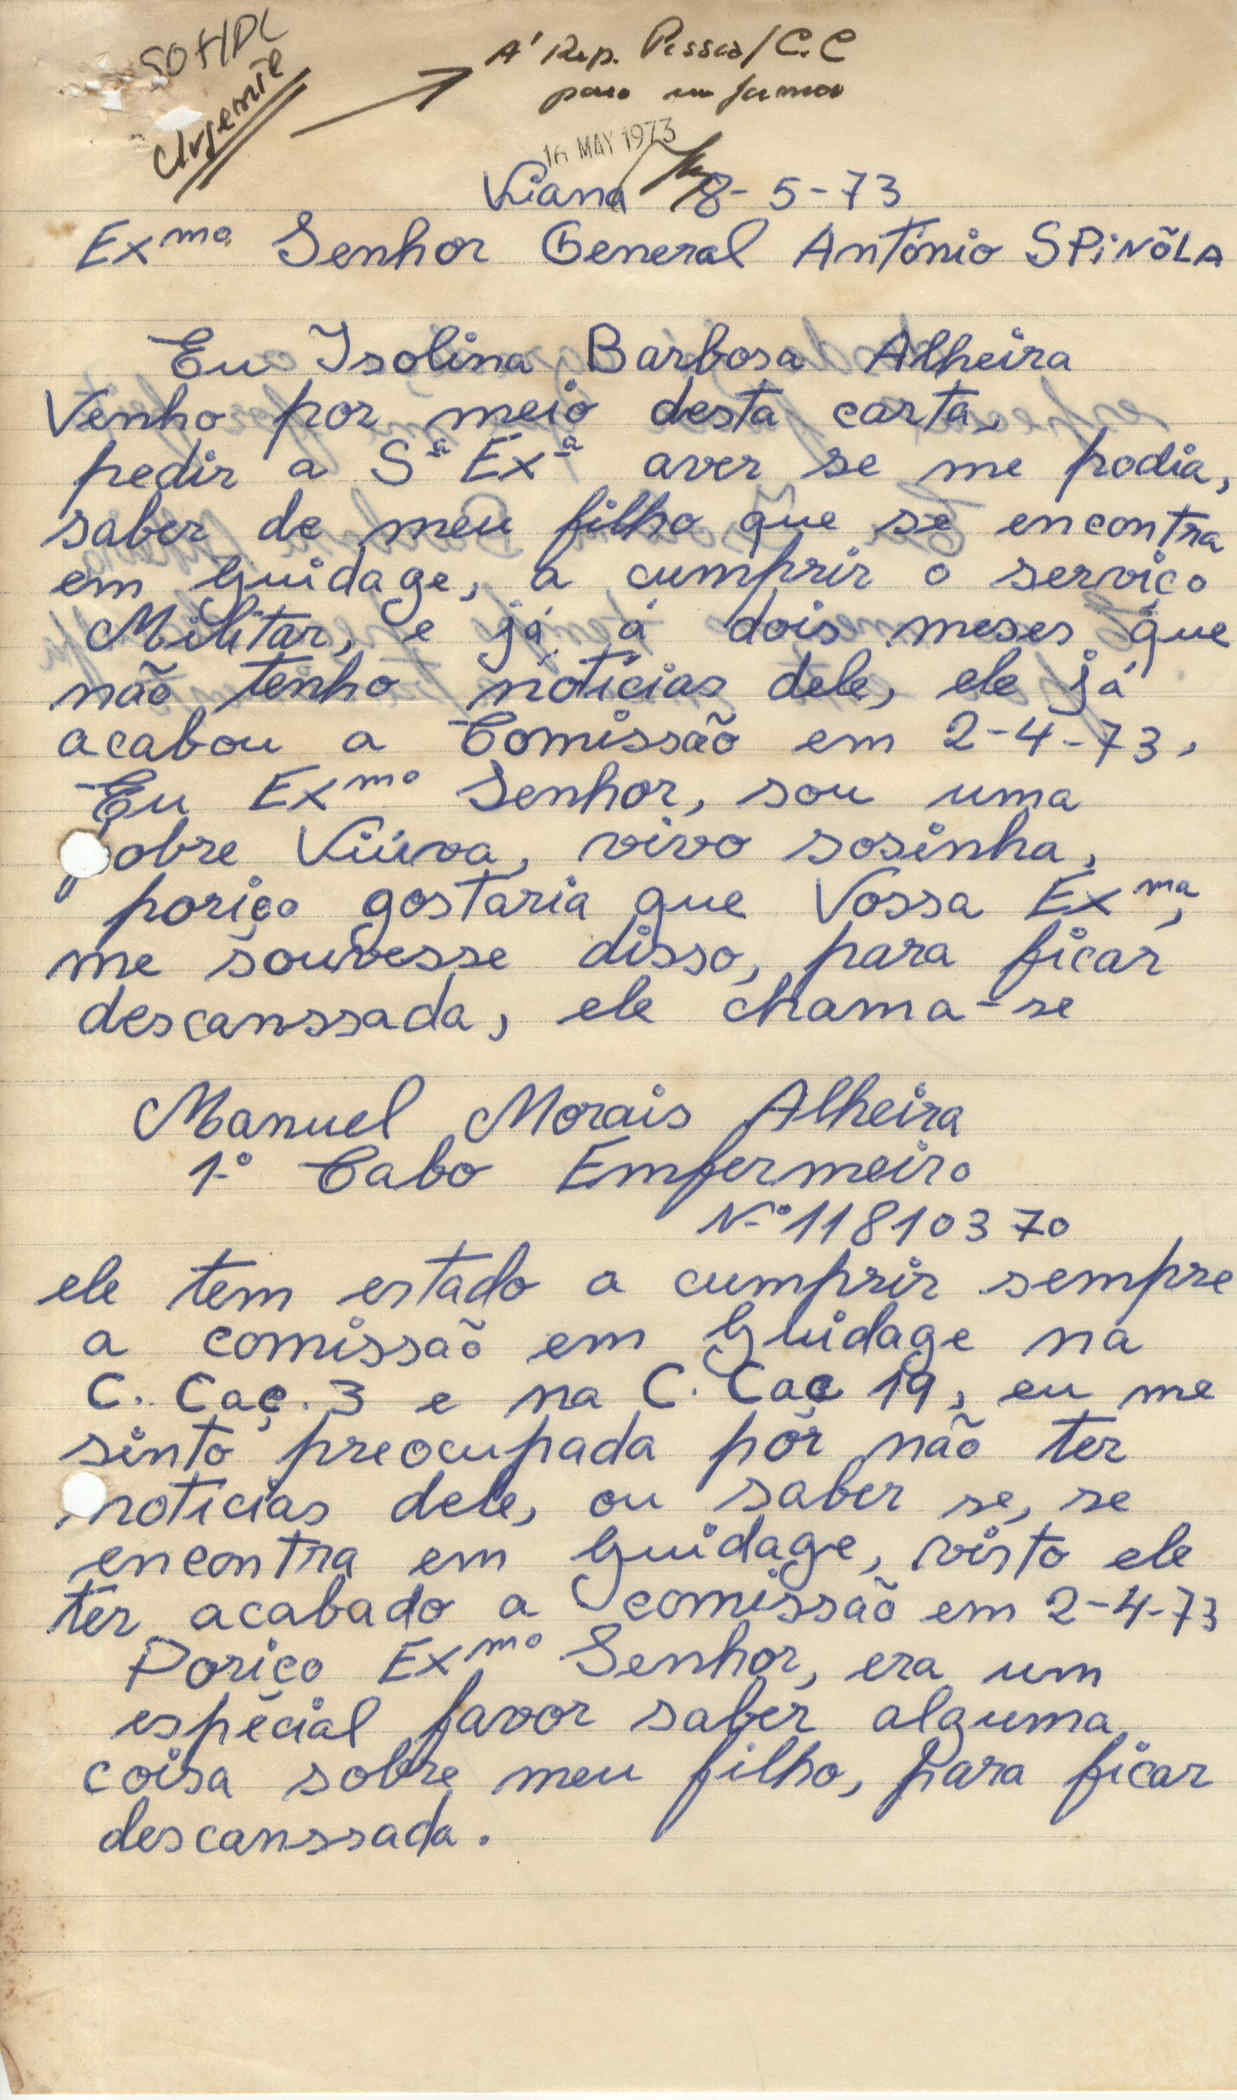 Urgente
À Rep. Pessoal/C.C
para informar
16 MAY 1973
Viana 8-5-73
Exmo Senhor General António SPiNÕLA
Eu Isolina Barbosa Alheira
Venho por meio desta carta,
pedir a Sª Exª aver se me podia,
saber de meu filho que se encontra
em Guidage, a cumprir o serviço
Militar, e já á dois meses que
não tenho notícias dele, ele já
acabou a Comissão em 2-4-73,
Eu Exmo Senhor, sou uma
pobre Viúva, vivo sosinha,
poriço gostaria que Vossa Exma,
me souvesse disso, para ficar
descanssada, ele chama-se
Manuel Morais Alheira
1º Cabo Emfermeiro
Nº 11810370
ele tem estado a cumprir sempre
a comissão em Guidage na
C. Caç. 3 e na C. Caç 19, eu me
sinto preocupada pór não ter
noticias dele, ou saber se, se
encontra em Guidage, visto ele
ter acabado a comissão em 2-4-73
Poriço Exmo Senhor, era um
espécial favor saber alguma
coisa sobre meu filho, para ficar
descanssada.